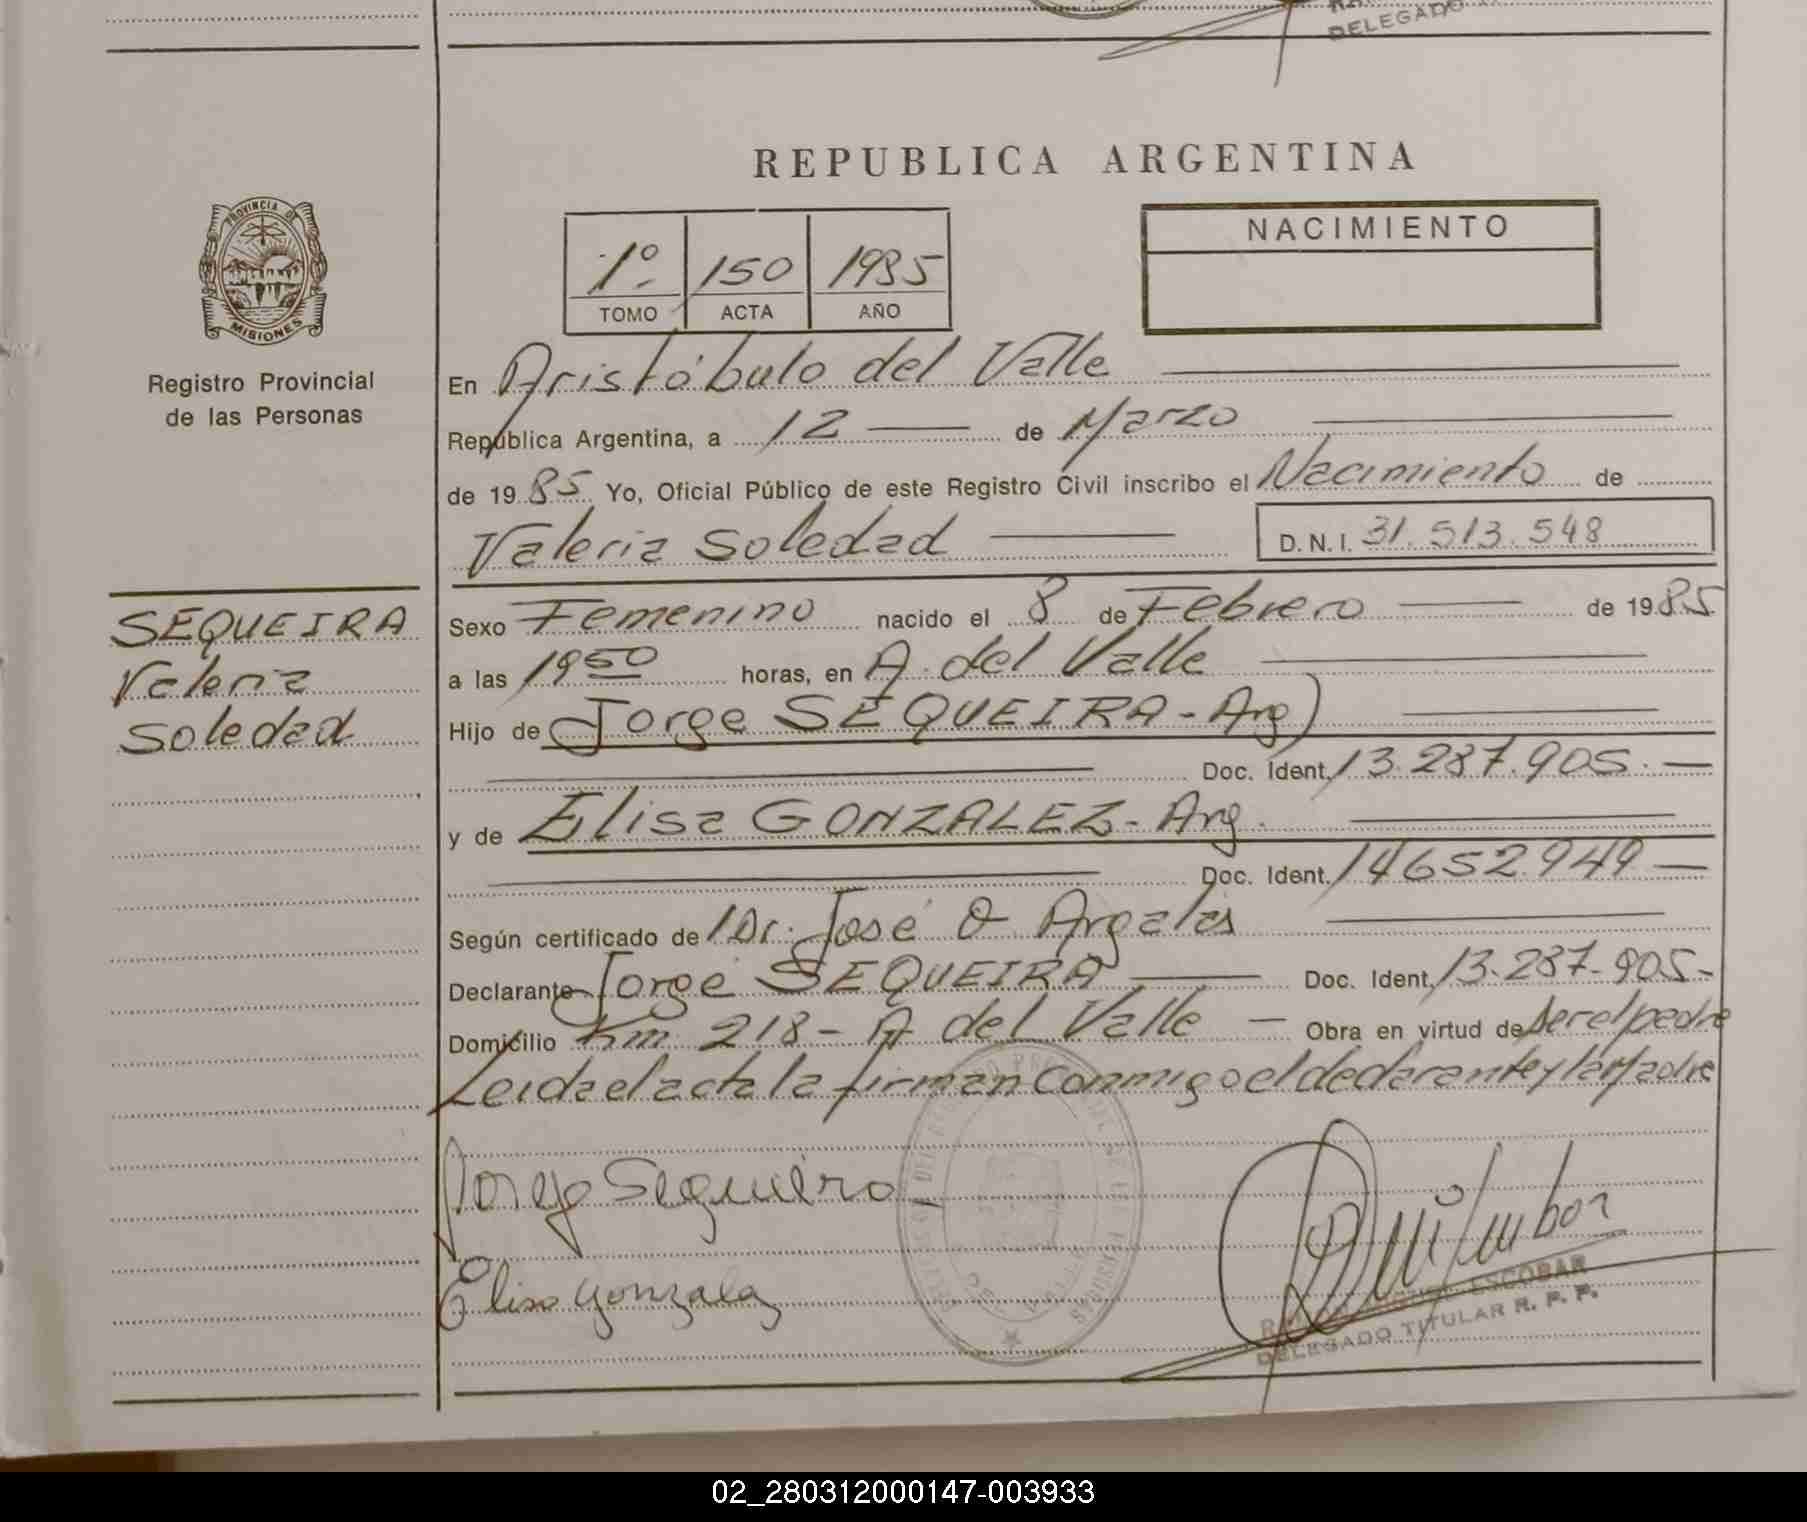 DELEGADO
REPUBLICA ARGENTINA
PROVINCIA DE
MISIONES
Registro Provincial
de las Personas
1º
150
1985
TOMO
ACTA
AÑO
NACIMIENTO
En Aristóbulo del Valle
República Argentina, a 12 de Marzo
de 1985 Yo, Oficial Público de este Registro Civil inscribo el Nacimiento de
Valeria Soledad D.N.I. 31.513.548
SEQUEIRA
Valeria
Soledad
Sexo Femenino nacido el 8 de Febrero de 1985
a las 19 50 horas, en A. del Valle
Hijo de (Jorge SEQUEIRA - Arg)
Doc. Ident. 13.287.905.-
y de Elisa GONZALEZ - Arg.
Doc. Ident. 14652.949-
Según certificado de Dr. José O Argalas
Declarante Jorge SEQUEIRA Doc. Ident. 13.287.905-
Domicilio Km 218 - A del Valle - Obra en virtud de ser el padre
Leida el acta la firman conmigo el declarante y la Madre
Jorge Sequeira
Elisa Gonzalez
ESCOBAR
DELEGADO TITULAR R. P. P.
02_280312000147-003933